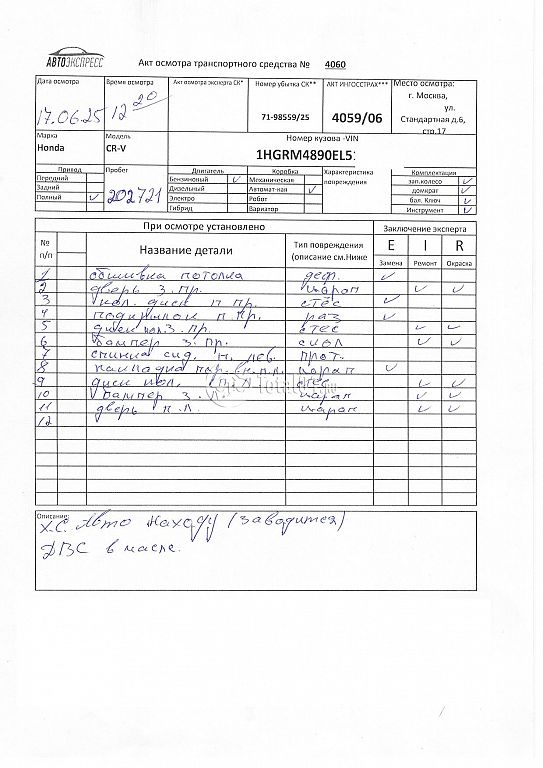 АВТОЭКСПРЕСС
Акт осмотра транспортного средства № 4060
Дата осмотра Время осмотра Акт осмотра эксперта СК* Номер убытка СК** АКТ ИНГОССТРАХ*** Место осмотра:
17.06.25 12 20 71-98559/25 4059/06 г. Москва,
ул.
Стандартная д.6,
стр.17
Марка Модель Номер кузова -VIN
Honda CR-V 1HGRM4890EL5
Привод Пробег Двигатель Коробка Характеристика повреждения Комплектация
Передний Бензиновый ✓ Механическая зап.колесо ✓
Задний Дизельный Автомат-ная ✓ домкрат ✓
Полный ✓ 202721 Электро Робот бал. Ключ ✓
Гибрид Вариатор Инструмент ✓
При осмотре установлено Заключение эксперта
№ п/п Название детали Тип повреждения (описание см.Ниже E I R
Замена Ремонт Окраска
1 обшивка потолка деф. ✓
2 дверь з. пр. царап ✓ ✓
3 кол. диск п пр. стёс ✓
4 подкрылок п. пр. раз ✓
5 диск кол. з. пр. стес ✓ ✓
6 бампер з. пр. скол ✓ ✓
7 спинка сид. п. лев. прот.
8 накладка пор. вн. п.л. царап ✓
9 диск кол. стес ✓ ✓
10 бампер з. царап ✓ ✓
11 дверь п.л. царап ✓ ✓
12
Описание:
Х.С. Авто находу (заводится)
ДВС в масле.